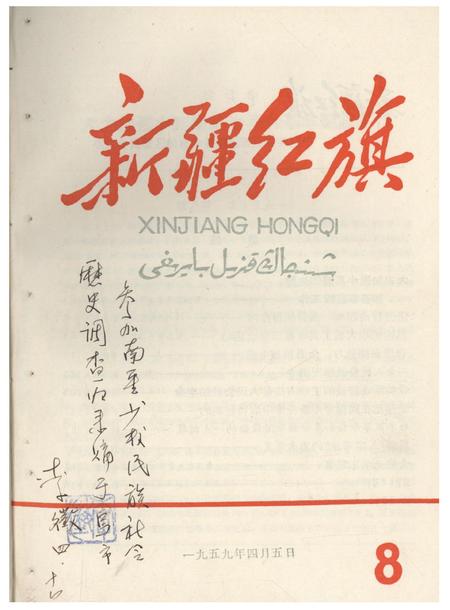 新疆红旗
XINJIANG HONGQI
شىنجاڭ قىزىل بايرىغى
参加南畺少数民族社会
歷史调查归来 于乌市
李徵 四·十
一九五九年四月五日
8